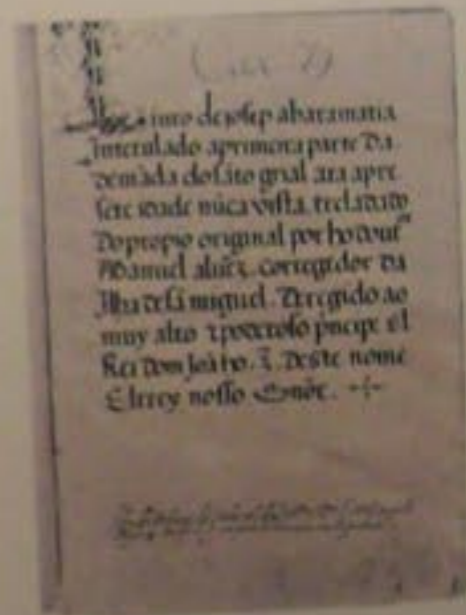 Liuro de josep abaramatia
intetulado aprimeira parte da
demãda do sãto grial ata apre
sẽte idade nũca vista. treladado
do propio original por ho doutor
Manuel aluẽz. corregedor da
Ilha de sã miguel. Deregido ao
muy alto τ poderoso prĩcipe El
Rei Dom Joãho. 3. deste nome
El rrey nosso Señor. -:-